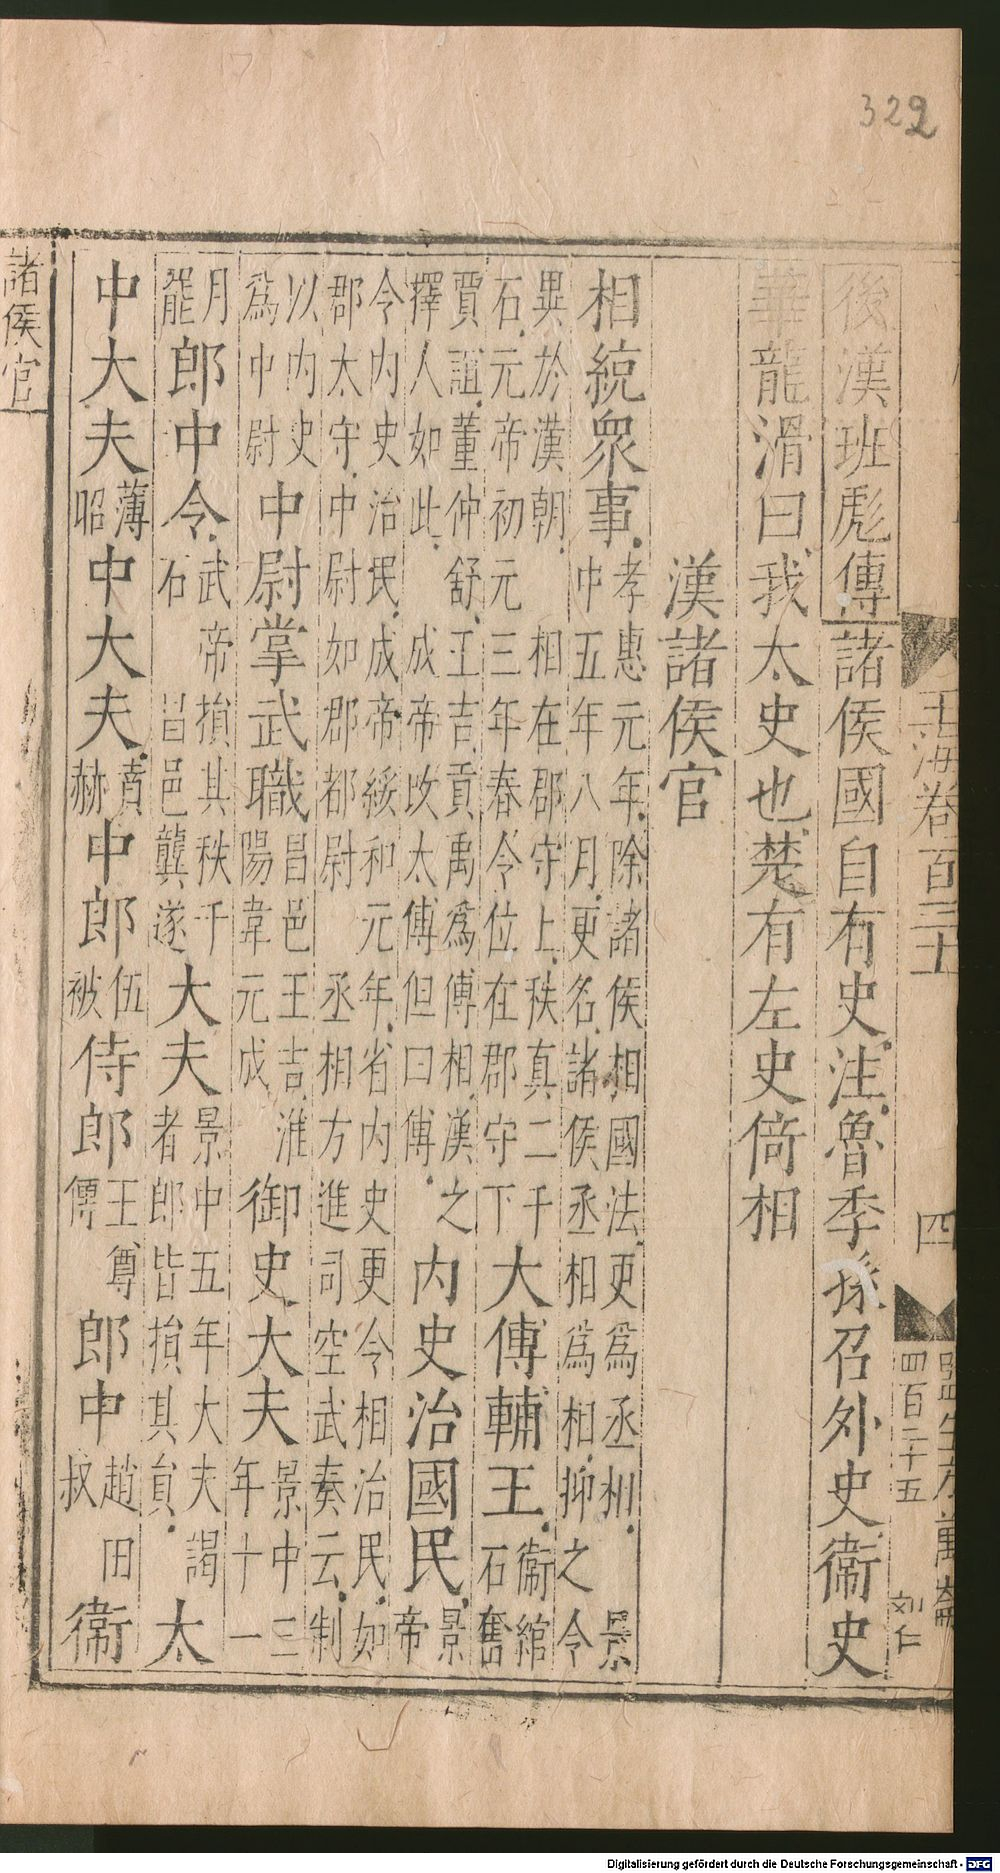 322
玉海卷百三十 四
監生 萬
四百二十五 刘仁
後漢班彪傳諸侯國自有史注魯季孫召外史衞史
華龍滑曰我太史也楚有左史倚相
漢諸侯官
相統衆事孝惠元年除諸侯相國法更爲丞相景中五年八月更名諸侯丞相爲相抑之令
異於漢朝相在郡守上秩真二千石元帝初元三年春令位在郡守下大傅輔王衞綰石奮
賈誼董仲舒王吉貢禹爲傅相漢之擇人如此成帝改太傅但曰傅内史治國民景帝
令内史治民成帝綏和元年省内史更令相治民如郡太守中尉如郡都尉丞相方進司空武奏云制
以内史爲中尉中尉掌武職昌邑王吉淮陽韋元成御史大夫景中三年十一
月罷郎中令武帝損其秩千石昌邑龔遂大夫景中五年大夫謁者郎皆損其員太
中大夫薄昭中大夫賁赫中郎伍被侍郎王尊傳郎中趙田叔衞
諸侯官
Digitalisierung gefördert durch die Deutsche Forschungsgemeinschaft - DFG